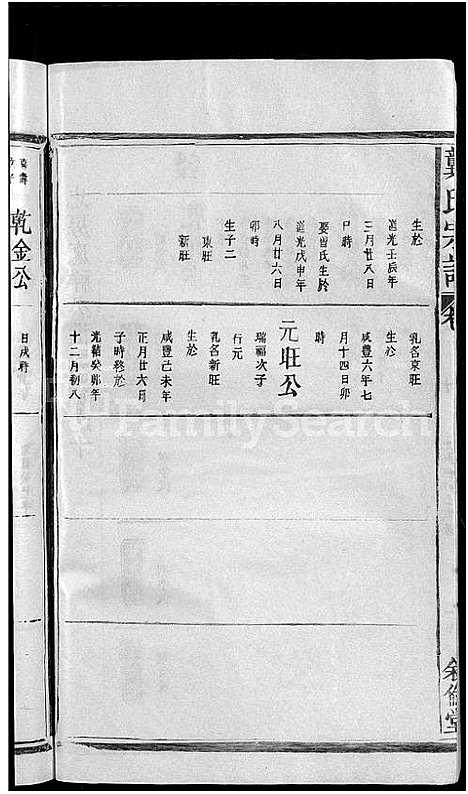 龔氏宗譜
卷
敘倫堂
生於
道光壬辰年
三月廿八日
巳時
娶曾氏生於
道光戊申年
八月廿六日
卯時
生子二
東旺
新旺
乳名東旺
生於
咸豐六年七
月十四日卯
時
元旺公
瑞福次子
行元
乳名新旺
生於
咸豐己未年
正月廿六日
子時移於
光緒癸卯年
十二月初八
日戌時
乾金公
FamilySearch